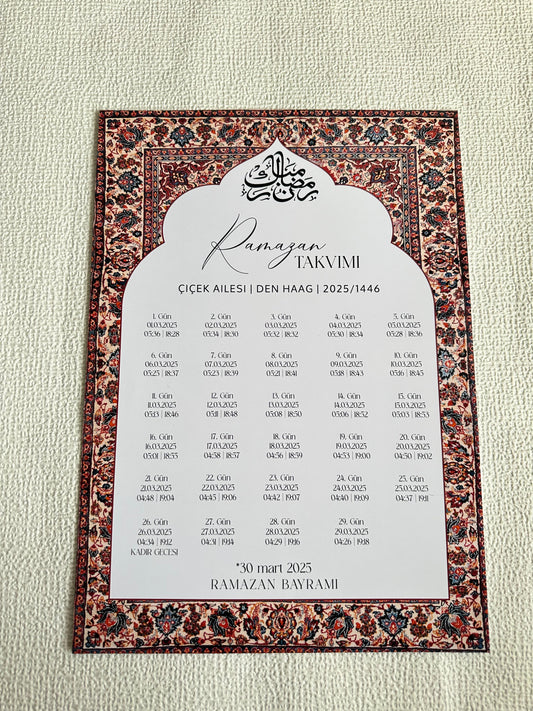 رمضان مبارك
Ramazan
TAKVIMI
ÇIÇEK AILESI | DEN HAAG | 2025/1446
1. Gün 2. Gün 3. Gün 4. Gün 5. Gün
01.03.2025 02.03.2025 03.03.2025 04.03.2025 05.03.2025
05:36 | 18:28 05:34 | 18:30 05:32 | 18:32 05:30 | 18:34 05:28 | 18:36
6. Gün 7. Gün 8. Gün 9. Gün 10. Gün
06.03.2025 07.03.2025 08.03.2025 09.03.2025 10.03.2025
05:25 | 18:37 05:23 | 18:39 05:21 | 18:41 05:18 | 18:43 05:16 | 18:45
11. Gün 12. Gün 13. Gün 14. Gün 15. Gün
11.03.2025 12.03.2025 13.03.2025 14.03.2025 15.03.2025
05:13 | 18:46 05:11 | 18:48 05:08 | 18:50 05:06 | 18:52 05:03 | 18:53
16. Gün 17. Gün 18. Gün 19. Gün 20. Gün
16.03.2025 17.03.2025 18.03.2025 19.03.2025 20.03.2025
05:01 | 18:55 04:58 | 18:57 04:56 | 18:59 04:53 | 19:00 04:50 | 19:02
21. Gün 22. Gün 23. Gün 24. Gün 25. Gün
21.03.2025 22.03.2025 23.03.2025 24.03.2025 25.03.2025
04:48 | 19:04 04:45 | 19:06 04:42 | 19:07 04:40 | 19:09 04:37 | 19:11
26. Gün 27. Gün 28. Gün 29. Gün
26.03.2025 27.03.2025 28.03.2025 29.03.2025
04:34 | 19:12 04:31 | 19:14 04:29 | 19:16 04:26 | 19:18
KADIR GECESI
*30 mart 2025
RAMAZAN BAYRAMI